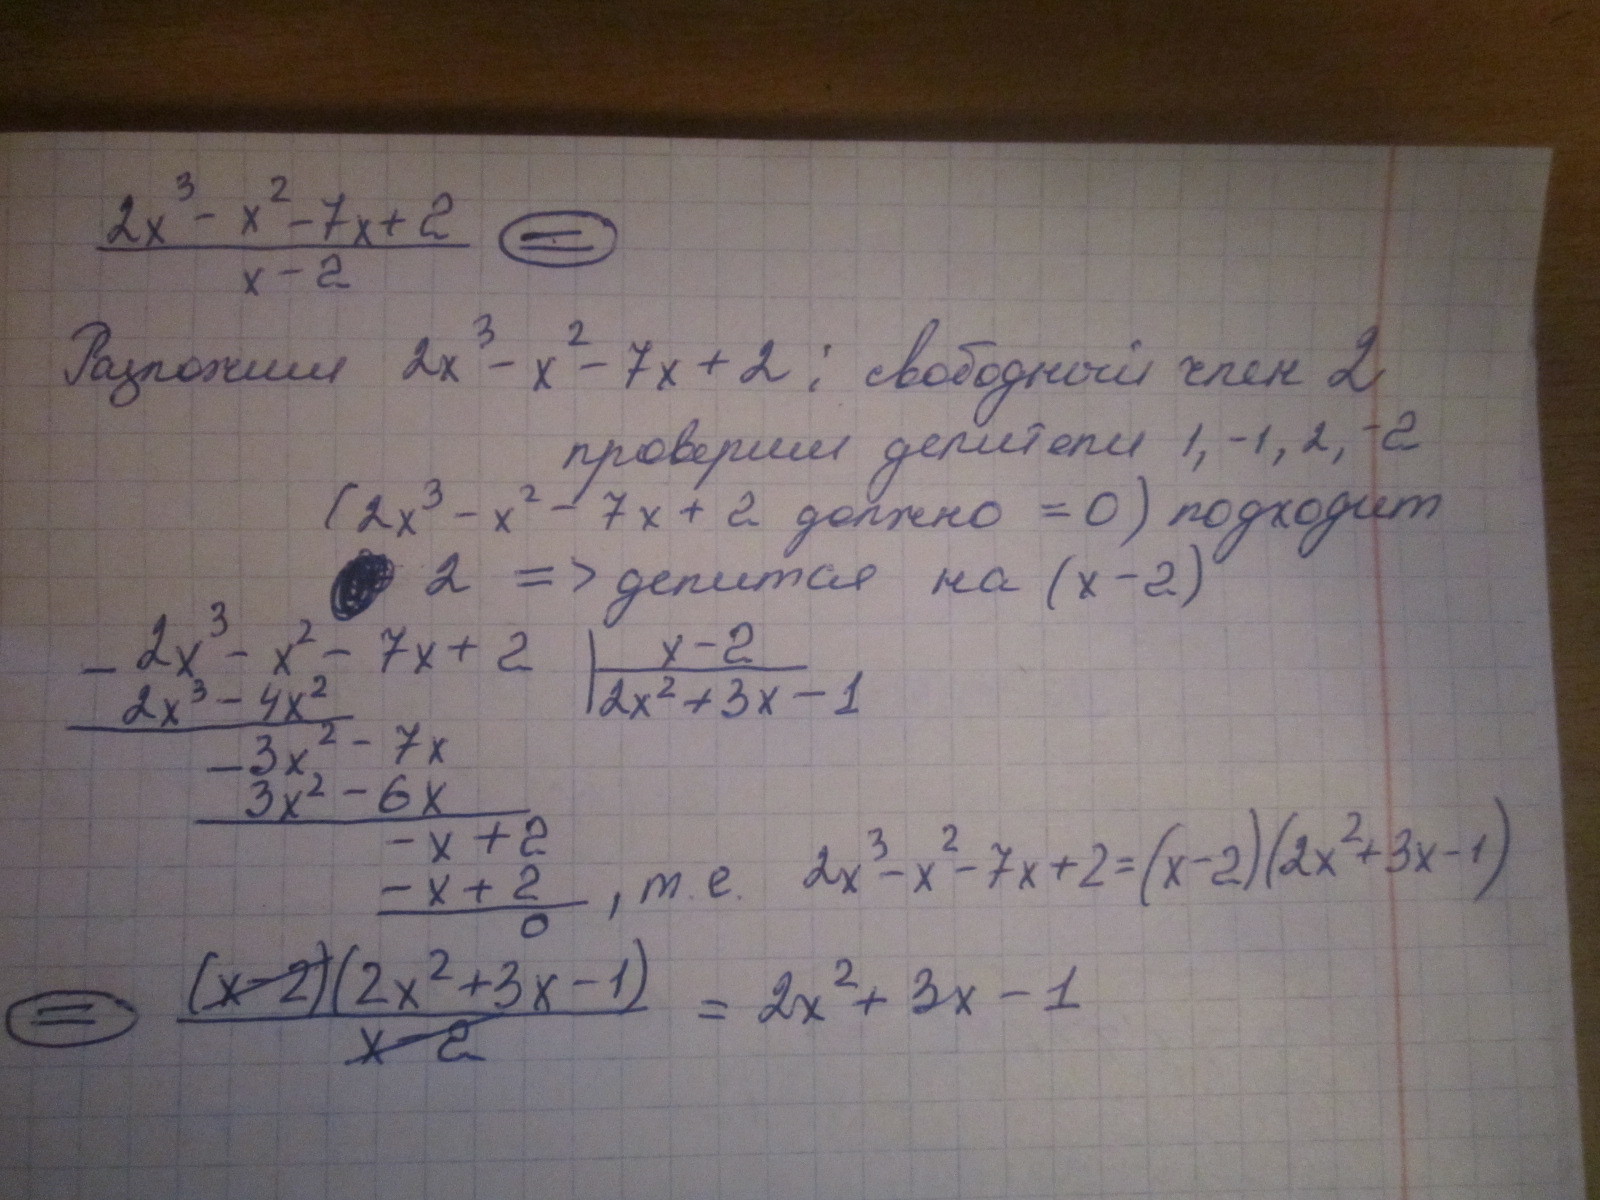 2x³ - x² - 7x + 2
x - 2
=
Разложим 2x³ - x² - 7x + 2 ; свободный член 2
проверим делители 1, -1, 2, -2
(2x³ - x² - 7x + 2 должно = 0) подходит
2 => делится на (x - 2)
- 2x³ - x² - 7x + 2 | x - 2
2x³ - 4x² | 2x² + 3x - 1
- 3x² - 7x
3x² - 6x
- x + 2
- x + 2
0 , т.е. 2x³ - x² - 7x + 2 = (x - 2)(2x² + 3x - 1)
= (x - 2)(2x² + 3x - 1)
x - 2
= 2x² + 3x - 1